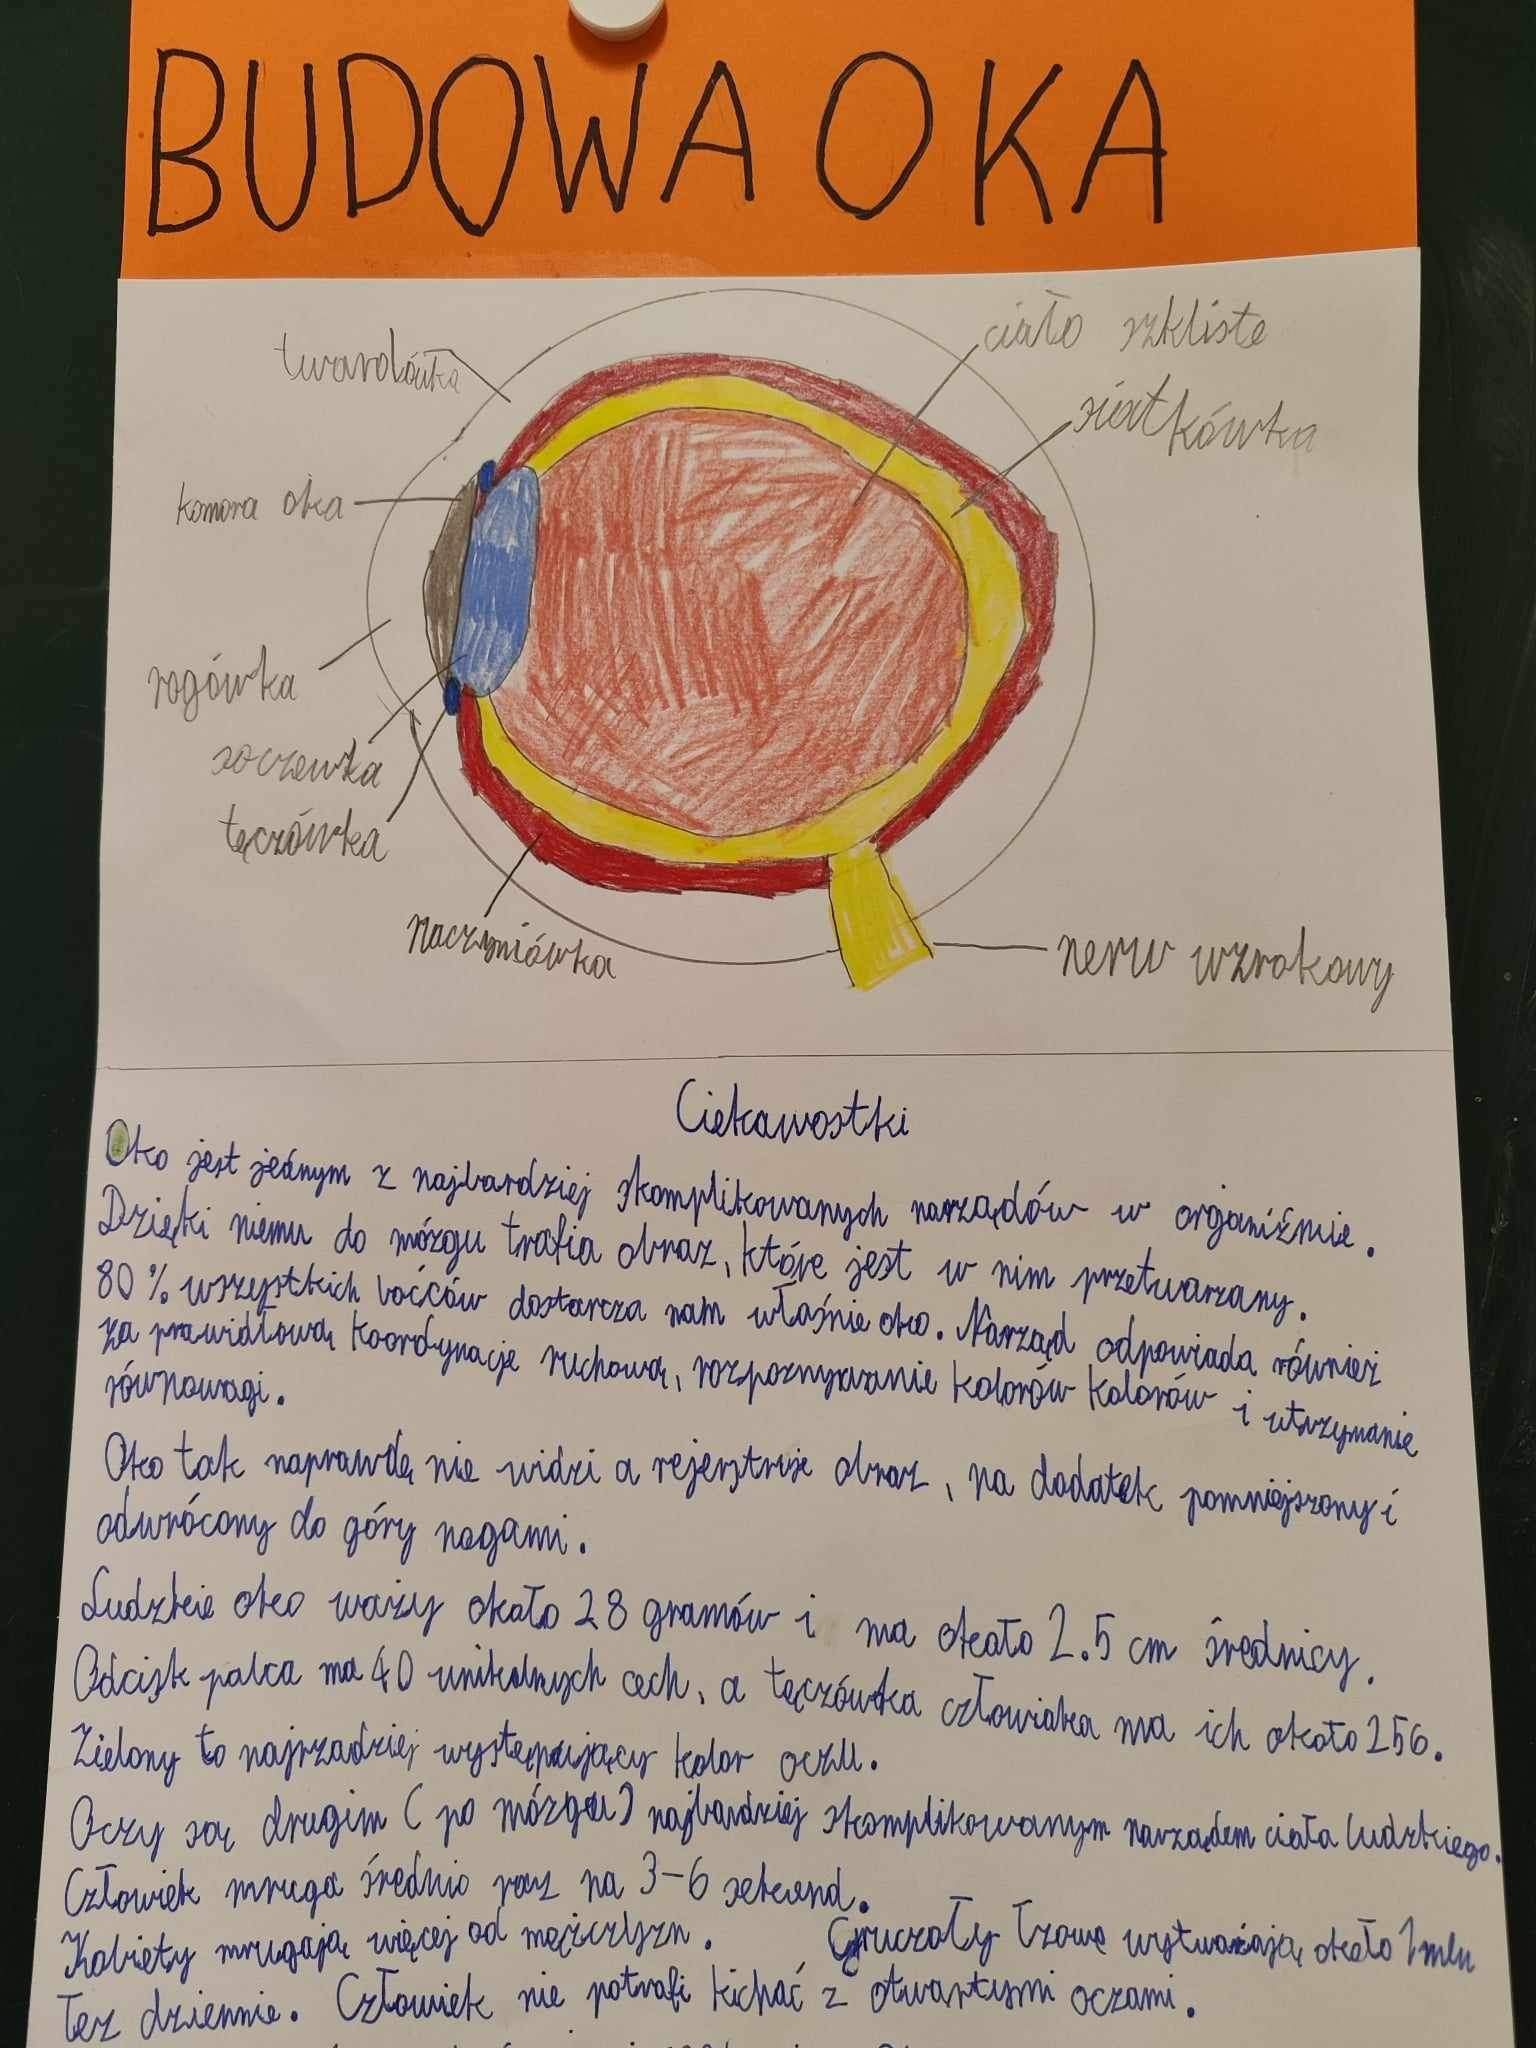 BUDOWA OKA
twardówka
ciało szkliste
siatkówka
komora oka
rogówka
soczewka
tęczówka
naczyniówka
nerw wzrokowy
Ciekawostki
Oko jest jednym z najbardziej skomplikowanych narządów w organiźmie.
Dzięki niemu do mózgu trafia obraz, które jest w nim przetwarzany.
80% wszystkich boćców dostarcza nam właśnie oko. Narząd odpowiada również
za prawidłową koordynacje ruchową, rozpoznywanie kolorów kolorów i utrzymanie
równowagi.
Oko tak naprawdę nie widzi a rejerstruje obraz, na dodatek pomniejszony i
odwrócony do góry nogami.
Ludzkie oko waży około 28 gramów i ma około 2.5 cm średnicy.
Odcisk palca ma 40 unikalnych cech, a tęczówka człowieka ma ich około 256.
Zielony to najrzadziej występujący kolor oczu.
Oczy są drugim (po mózgu) najbardziej skomplikowanym narządem ciała ludzkiego.
Człowiek mruga średnio raz na 3-6 sekund.
Kobiety mrugają więcej od mężczyzn. Gruczoły łzowe wytważają około 1 mln
łez dziennie. Człowiek nie potrafi kichać z otwartymi oczami.